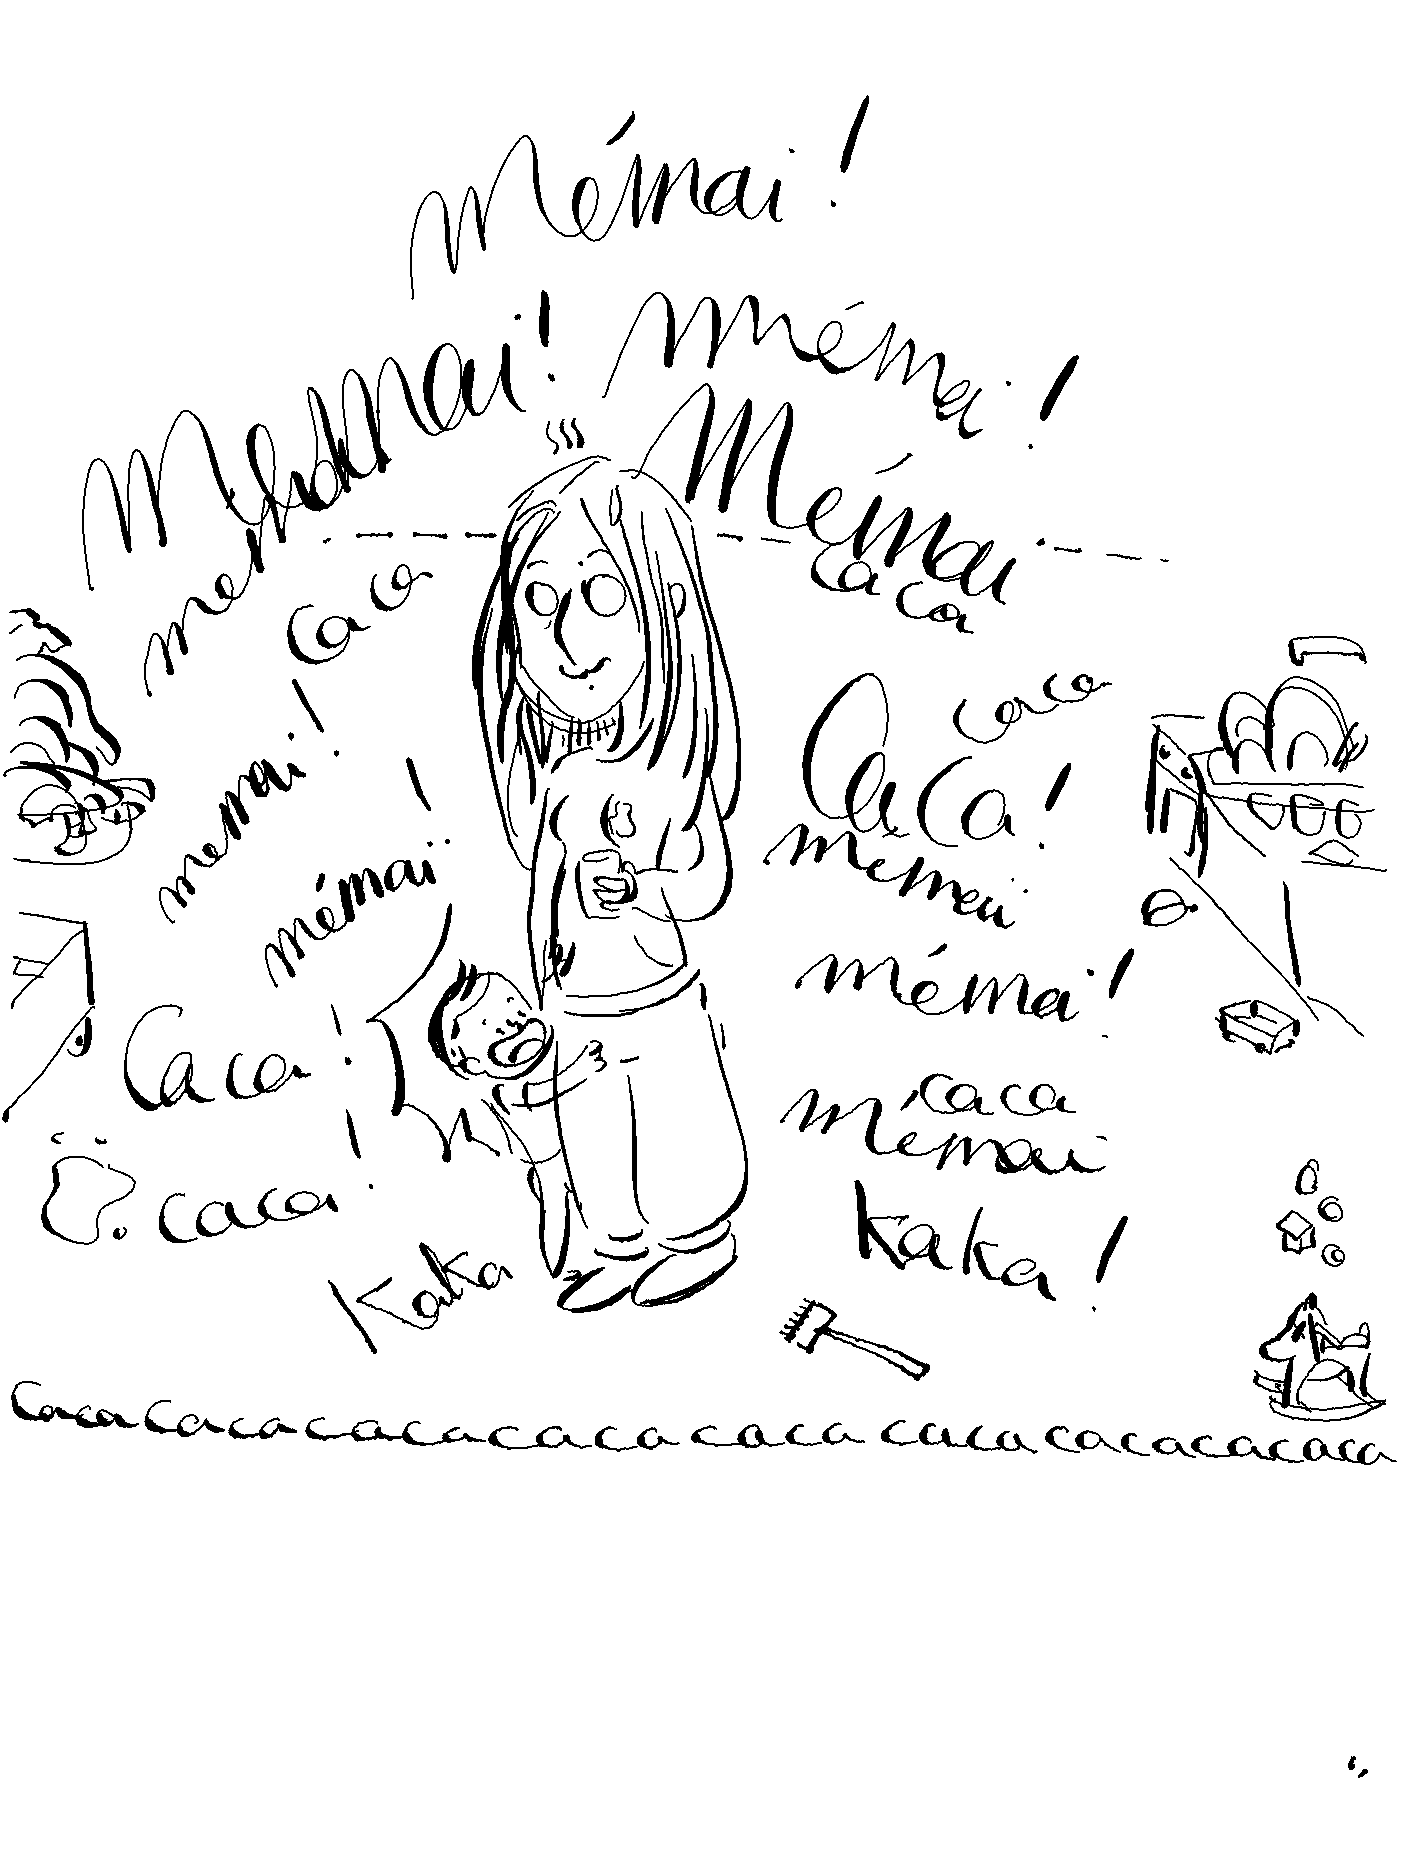 Mémai !
mémai !
Mémai !
Mémai
caca
caca
caca
memai !
Caca !
memai
mémai !
mémai !
Caca !
caca
mémai
caca !
Kaka !
Kaka
Cacacacacacacacacacacacacacaca